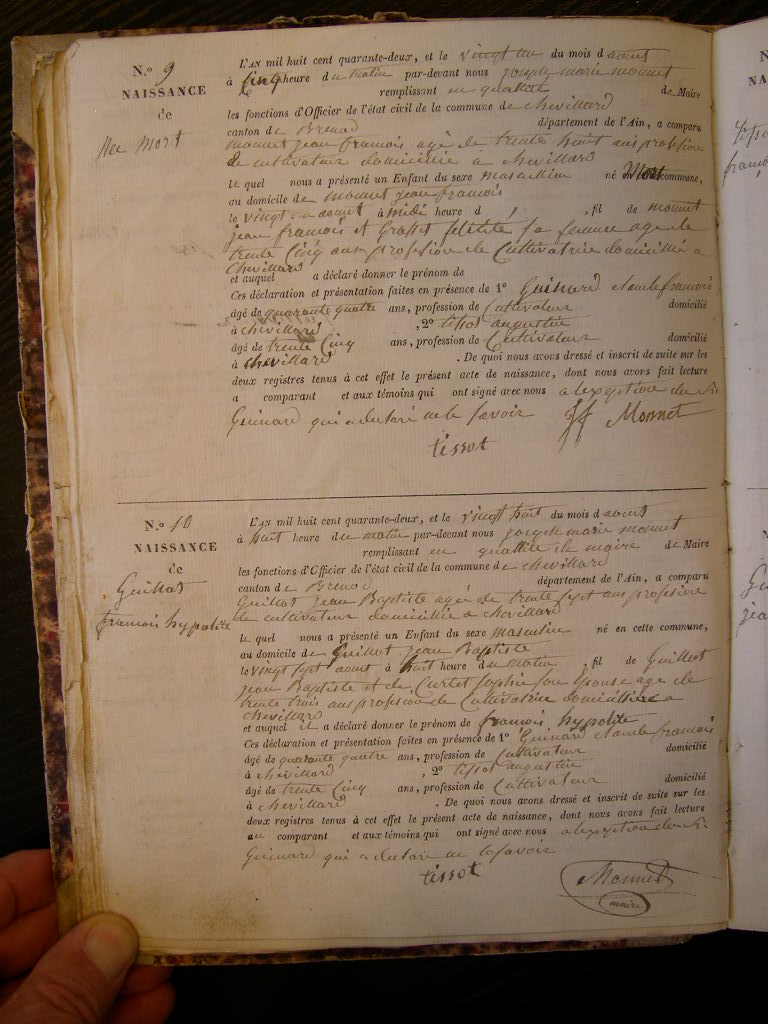 N.o 9
NAISSANCE
de
Nee Mort
L'AN mil huit cent quarante-deux, et le vingt un du mois d aout
à Cinq heure du matin par-devant nous joseph marie monnet
remplissant en qualité de Maire
les fonctions d'Officier de l'état civil de la commune de chevillard
canton de Brenod département de l'Ain, a comparu
monnet jean francois agé de trente huit ans profession
de cultivateur domicillié a chevillard
le quel nous a présenté un Enfant du sexe masculin né Mort commune,
au domicile de monnet jean francois
le vingt un aout à midi heure d , fil de monnet
jean francois et Grosset felicité sa femme age de
trente Cinq ans profession de Cultivatrice domicillié a
chevillard
et auquel a déclaré donner le prénom de
Ces déclaration et présentation faites en présence de 1° Guinard claude francois
âgé de quarante quatre ans, profession de Cultivateur domicilié
à chevillard , 2° tissot augustin
âgé de trente Cinq ans, profession de Cultivateur domicilié
à chevillard . De quoi nous avons dressé et inscrit de suite sur les
deux registres tenus à cet effet le présent acte de naissance, dont nous avons fait lecture
a comparant et aux témoins qui ont signé avec nous a lexeption du Sr.
Guinard qui a declaré ne le savoir Monnet
tissot
N.o 10
NAISSANCE
de
Guillot
francois hypolite
L'AN mil huit cent quarante-deux, et le vingt huit du mois d aout
à huit heure du matin par-devant nous joseph marie monnet
remplissant en qualité de maire de Maire
les fonctions d'Officier de l'état civil de la commune de chevillard
canton de Brenod département de l'Ain, a comparu
Guillot jean Baptiste agé de trente sept ans profession
de cultivateur domicillié a chevillard
le quel nous a présenté un Enfant du sexe masculin né en cette commune,
au domicile de Guillot jean Baptiste
le vingt sept aout à huit heure du matin , fil de Guillot
jean Baptiste et de Curtet Sophie son epouse age de
trente trois ans profession de Cultivatrice domicilliée a
chevillard
et auquel il a déclaré donner le prénom de francois hypolite
Ces déclaration et présentation faites en présence de 1° Guinard claude francois
âgé de quarante quatre ans, profession de Cultivateur domicilié
à chevillard , 2° tissot augustin
âgé de trente Cinq ans, profession de Cultivateur domicilié
à chevillard . De quoi nous avons dressé et inscrit de suite sur les
deux registres tenus à cet effet le présent acte de naissance, dont nous avons fait lecture
au comparant et aux témoins qui ont signé avec nous a lexeption du Sr.
Guinard qui a declaré ne le savoir
tissot Monnet
maire